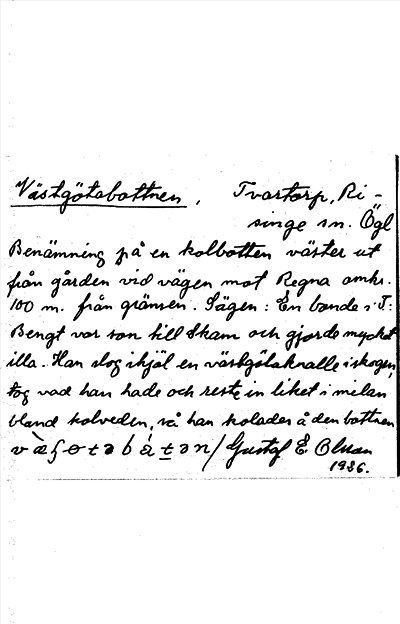 Västgötabottnen, Tvartorp, Ri-
singe sn. Ögl
Benämning på en kolbotten väster ut
från gården vid vägen mot Regna omkr.
100 m. från gränsen. Sägen: En bonde i T:
Bengt var son till Skam och gjorde mycket
illa. Han slog ihjäl en västgötaknalle i skogen,
tog vad han hade och reste in liket i milan
bland kolveden, så han kolades å den bottnen
Gustaf E. Olsson
1936.